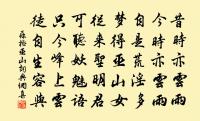 昔時亦雲雨
今時亦雲雨
自是荒淫多
夢得巫山女
從來聖明君
可聽妖魅語
只今峰上雲
徒自生容與
蘇拯巫山